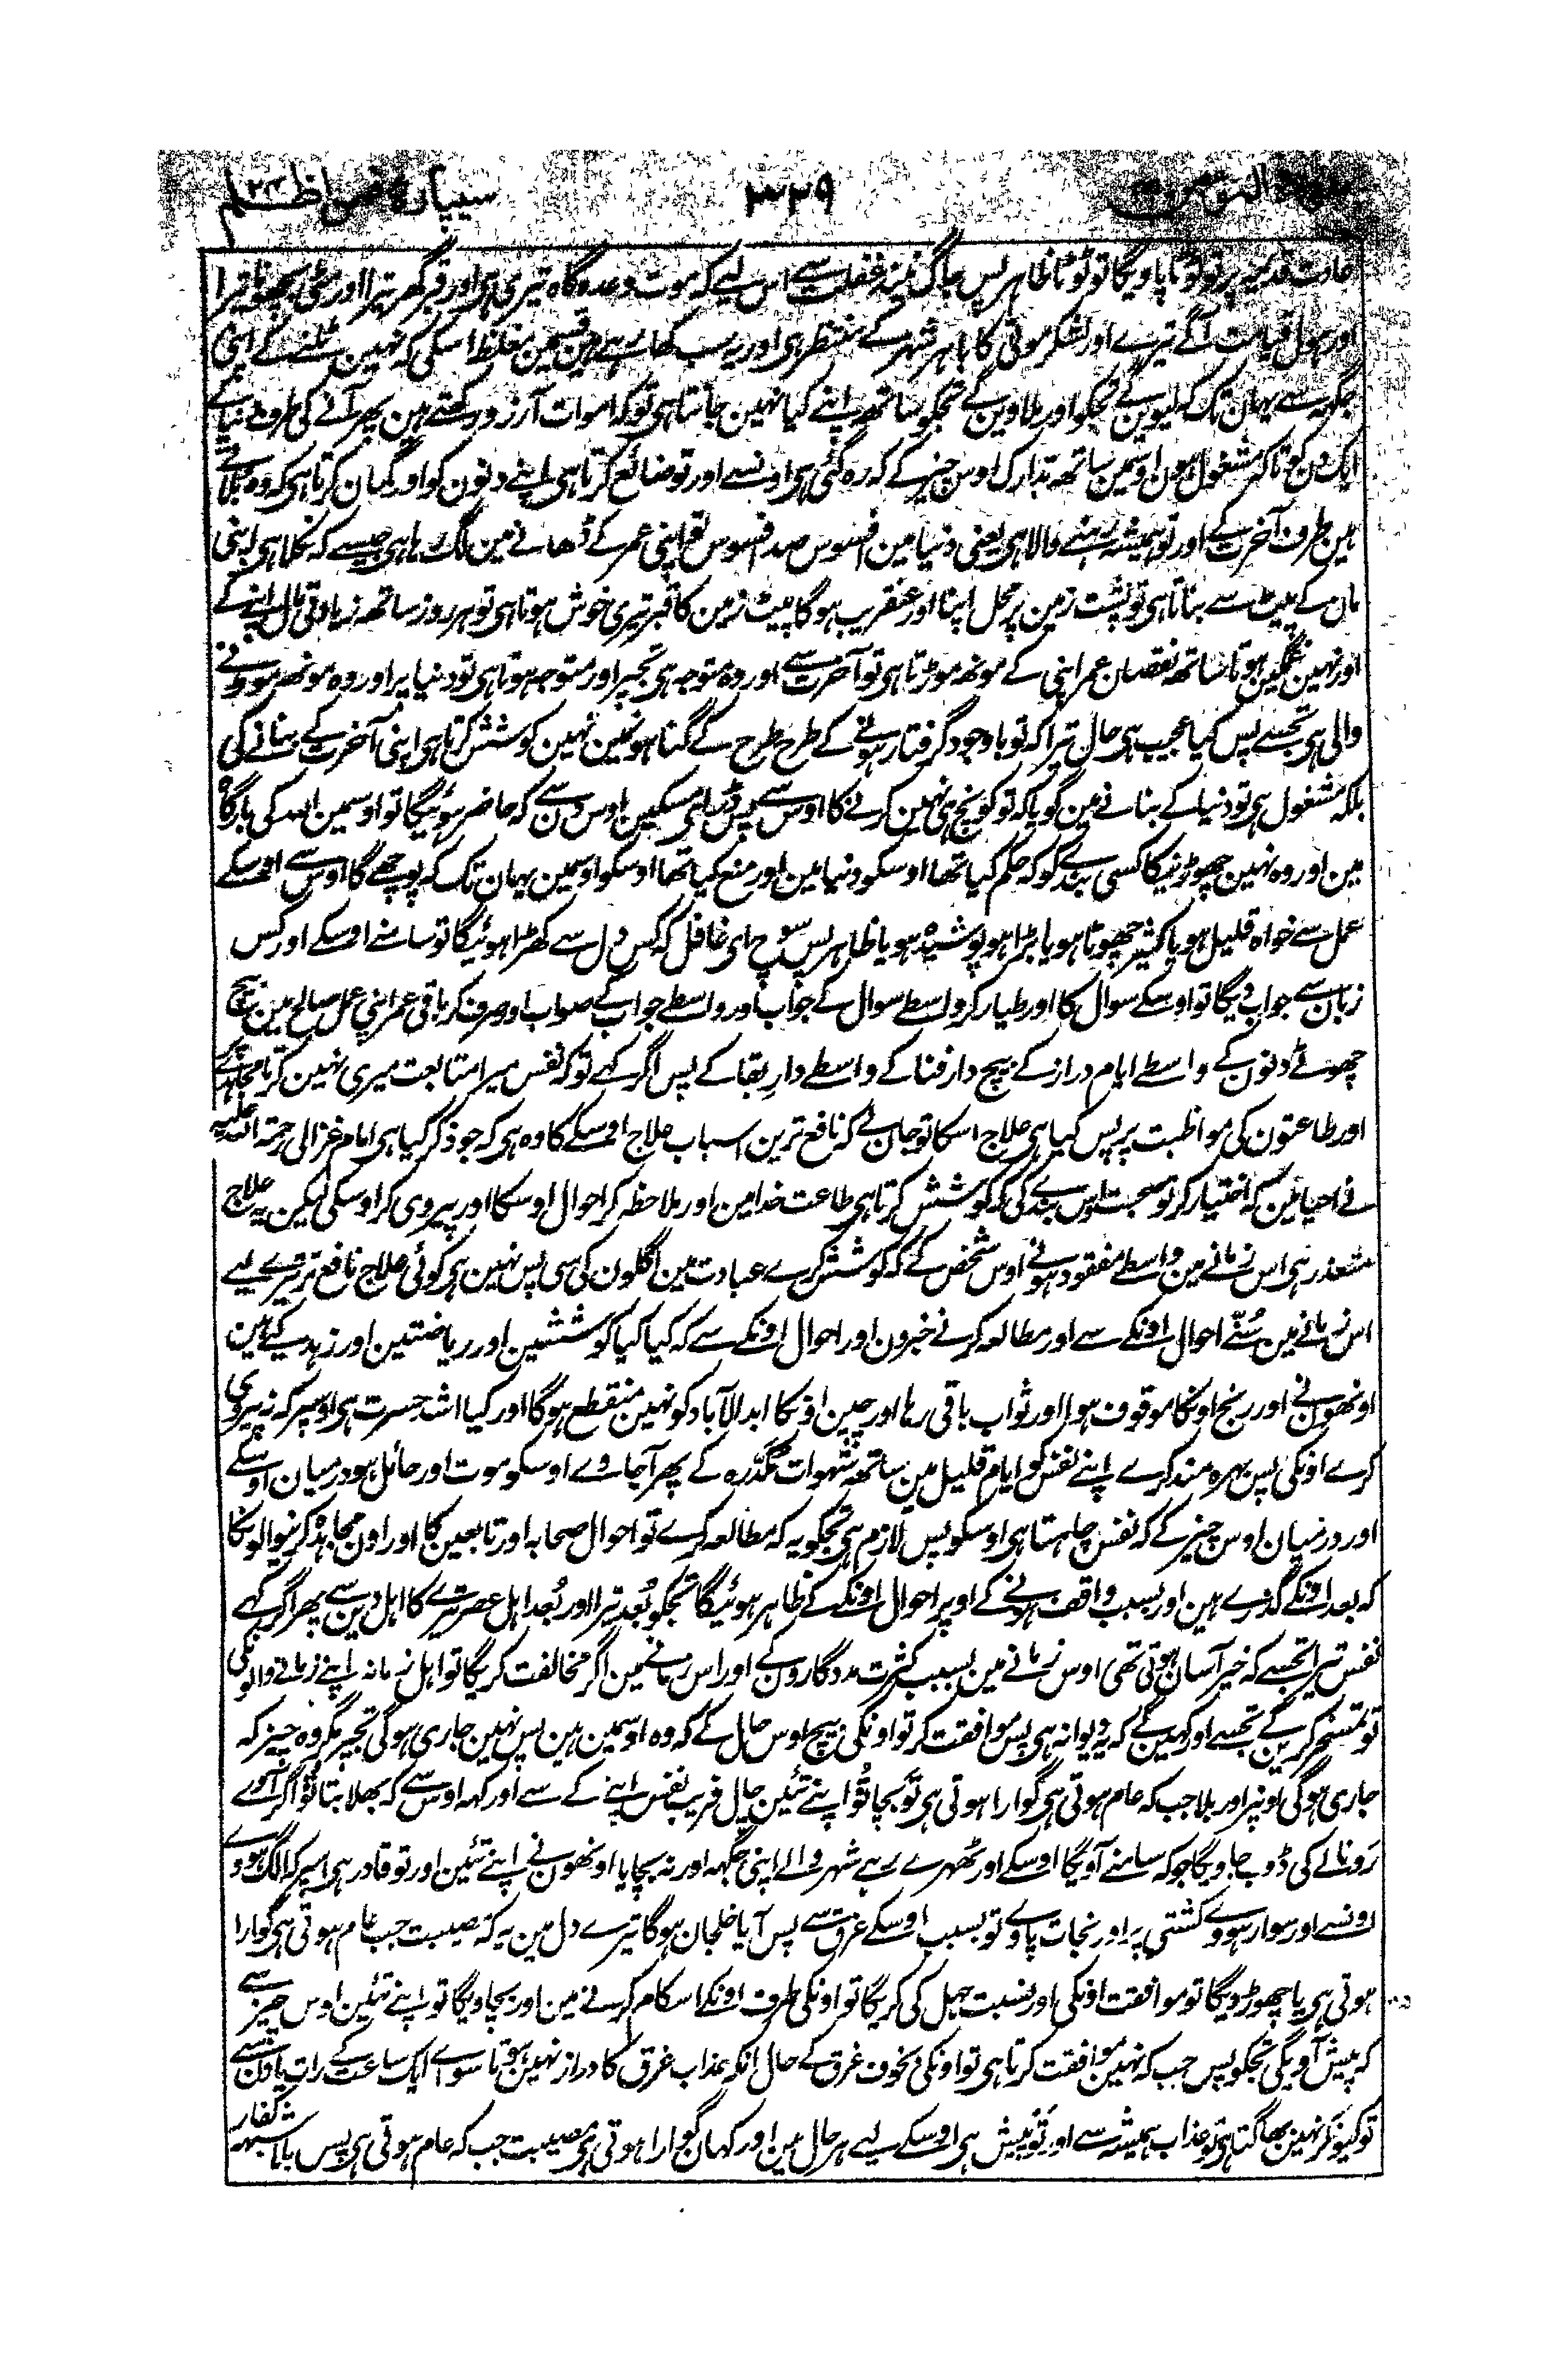 المومن ۳۲۹ سیپارہ فمن اظلم ۲۴
پر تو ٹوٹا پاویگا تو ٹوٹا ظاہر پس جاگ نیند غفلت سے اس لیے کہ موت وعدہ گاہ تیری ہی اور قبر گھر تیرا اور مٹی بچھونا تیرا
اور ہول قیامت آگے تیرے اور لشکر موتی کا باہر شہر کے منتظر ہی اور یہ سب کھا رہے ہین قسمین مغلظ اسکی کہ نہین ٹلنے کے اپنی
جگہہ سے یہان تک کہ لیوین گے تجکو اور ملاوین گے تجکو ساتھ اپنے کیا نہین جانتا ہی تو کہ اموات آرزو رکھتے ہین پھر آنے کی طرف دنیا کے
ایک دن کو تا کہ مشغول ہون اوسمین ساتھ تدارک اوس چیز کے کہ رہ گئی ہی اونسے اور تو ضائع کرتا ہی اپنے دنون کو اور گمان کرتا ہی کہ وہ بلائے
ہین طرف آخرت کے اور تو ہمیشہ رہنے والا ہی یعنی دنیا مین افسوس صد افسوس تو اپنی عمر کے ڈھانے مین لگ رہا ہی جیسے کہ نکلا ہی اپنی
مان کے پیٹ سے بناتا ہی تو پشت زمین پر محل اپنا اور عنقریب ہوگا پیٹ زمین کا قبر تیری خوش ہوتا ہی تو ہر روز ساتھ زیادتی مال اپنے کے
اور نہین غمگین ہوتا ساتھ نقصان عمر اپنی کے مونھ موڑتا ہی تو آخرت سے اور وہ متوجہ ہی تجپر اور متوجہ ہوتا ہی تو دنیا پر اور وہ مونھ موڑنے
والی ہی تجسے پس کیا عجیب ہی حال تیرا کہ تو باوجود گرفتار ہونے کے طرح طرح کے گناہونمین نہین کوشش کرتا ہی اپنی آخرت کے بنانے کی
بلکہ مشغول ہی تو دنیا کے بنانے مین گویا کہ تو کوچ ہی نہین کرنے کا اوس سے پس ڈر ای مسکین اوس دن سے کہ حاضر ہوئیگا تو اوسمین اللہ کی بارگاہ
مین اور وہ نہین چھوڑنیکا کسی بندے کو کہ حکم کیا تھا اوسکو دنیا مین اور منع کیا تھا اوسکو اوسمین یہان تک کہ پوچھے گا اوس سے اوسکے
عمل سے خواہ قلیل ہو یا کثیر چھوٹا ہو یا بڑا ہو پوشیدہ ہو یا ظاہر پس سوچ ای غافل کہ کس دل سے کھڑا ہوئیگا تو سامنے اوسکے اور کس
زبان سے جواب دیگا تو اوسکے سوال کا اور طیار کر واسطے سوال کے جواب اور واسطے جواب کے صواب اور صرف کر باقی عمر اپنی عمل صالح مین بیچ
چھوٹے دنون کے واسطے ایام دراز کے بیچ دار فنا کے واسطے دارِ بقا کے پس اگر کہے تو کہ نفس میرا متابعت میری نہین کرتا مجاہدے پر
اور طاعتون کی مواظبت پر پس کیا ہی علاج اسکا تو جان لے کہ نافع ترین اسباب علاج اوسکے کا وہ ہی کہ جو ذکر کیا ہی امام غزالی رحمۃ اللہ علیہ
نے احیا مین کہ اختیار کر تو صحبت اوس بندے کی کہ کوشش کرتا ہی طاعت خدا مین اور ملاحظہ کر احوال اوسکا اور پیروی کر اوسکی لیکن یہ علاج
متعذر ہی اس زمانے مین واسطے مفقود ہونے اوس شخص کے کہ کوشش کرے عبادت مین اگلون کی سی پس نہین ہی کوئی علاج نافع تر تیرے لیے
اس زمانے مین سُننے احوال اونکے سے اور مطالعہ کرنے خبرون اور احوال اونکے سے کہ کیا کیا کوششین اور ریاضتین اور زہد کیے ہین
اونھون نے اور رنج اونکا موقوف ہوا اور ثواب باقی رہا اور چین اونکا ابد الآباد کو نہین منقطع ہوگا اور کیا اشد حسرت ہی اوسپر کہ نہ پیروی
کرے اونکی پس بہرہ مند کرے اپنے نفس کو ایام قلیل مین ساتھ شہوات مکدّرہ کے پھر آجاوے اوسکو موت اور حائل ہو درمیان اوسکے
اور درمیان اوس چیز کے کہ نفس چاہتا ہی اوسکو پس لازم ہی تجکو یہ کہ مطالعہ کرے تو احوال صحابہ اور تابعین کا اور اون مجاہدہ کرنیوالونکا
کہ بعد اونکے گذرے ہین اور بسبب واقف ہونے کے اوپر احوال اونکے کے ظاہر ہوئیگا تجکو بُعد تیرا اور بُعد اہل عصر تیرے کا اہل دین سے پھر اگر کہے
نفس تیرا تجسے کہ خیر آسان ہوتی تھی اوس زمانے مین بسبب کثرت مددگارون کے اور اس زمانے مین اگر مخالفت کریگا تو اہل زمانہ اپنے زمانے والونکی
تو تمسخر کرین گے تجسے اور کہین گے کہ یہ دیوانہ ہی پس موافقت کر تو اونکی بیچ اوس حال کے کہ وہ اوسمین ہین پس نہین جاری ہوگی تجپر مگر وہ چیز کہ
جاری ہوگی اونپر اور بلا جب کہ عام ہوتی ہی گوارا ہوتی ہی تو بچا تُو اپنے تئین جال فریب نفس اپنے کے سے اور کہہ اوس سے کہ بھلا بتا تُو اگر آوے
رَو نالے کی ڈوب جاویگا جو کہ سامنے آویگا اوسکے اور ٹھہرے رہے شہر والے اپنی جگہہ اور نہ بچایا اونھون نے اپنے تئین اور تو قادر ہی اسپر کہ الگ ہووے
اونسے اور سوار ہووے کشتی پر اور نجات پاوے تو بسبب اوسکے غرق سے پس آیا خلجان ہوگا تیرے دل مین یہ کہ مصیبت جب عام ہوتی ہی گوارا
ہوتی ہی یا چھوڑ دیگا تو موافقت اونکی اور نسبت جہل کی کریگا تو اونکی طرف اونکے اس کام کرنے مین اور بچاویگا تو اپنے تئین اوس چیز سے
کہ پیش آویگی تجکو پس جب کہ نہین موافقت کرتا ہی تو اونکی بخوف غرق کے حال انکہ عذاب غرق کا دراز نہین ہوتا سوائے ایک ساعت کے رات یا دن سے
تو کیونکر نہین بھاگتا ہی تو عذاب ہمیشہ سے اور تو پیش ہی اوسکے لیے ہر حال مین اور کہان گوارا ہوتی ہی مصیبت جب کہ عام ہوتی ہی پس بلا شبہہ کفار